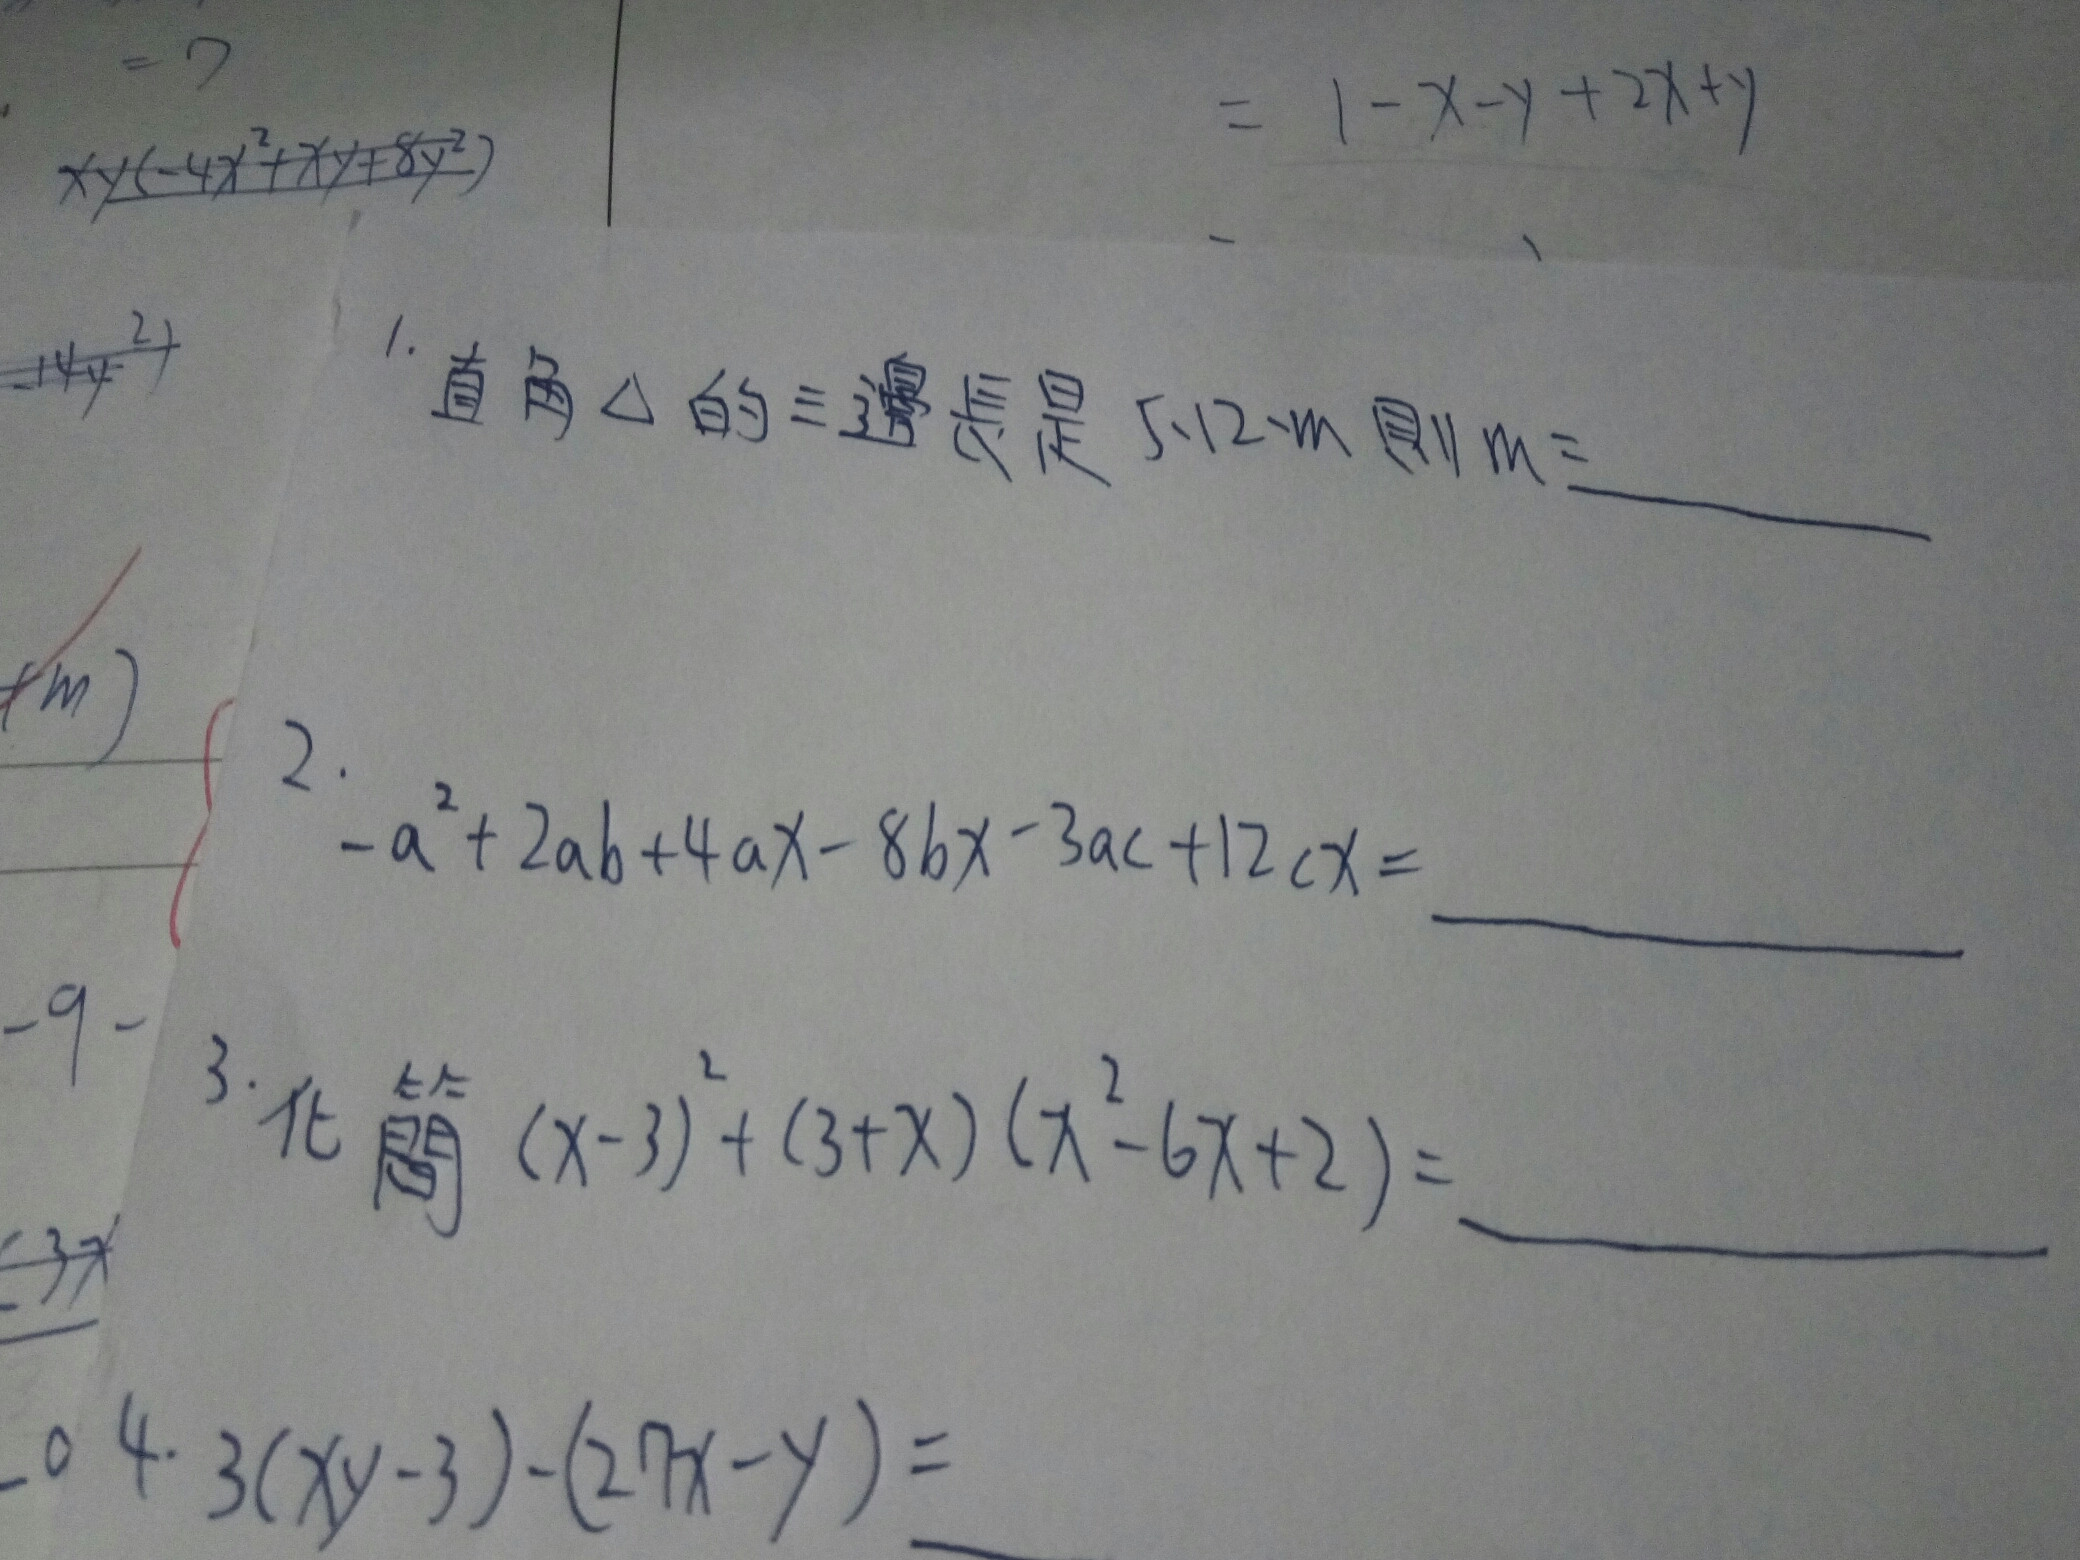 = 7
xy(-4x²+xy+8y²)
= 1-x-y+2x+y
-14y²)
+m)
-9-
-3x
-0
1. 直角△的三邊長是 5、12、m 則 m=
2.
-a²+2ab+4ax-8bx-3ac+12cx=
3. 化簡 (x-3)²+(3+x)(x²-6x+2)=
4. 3(xy-3)-(27x-y)=